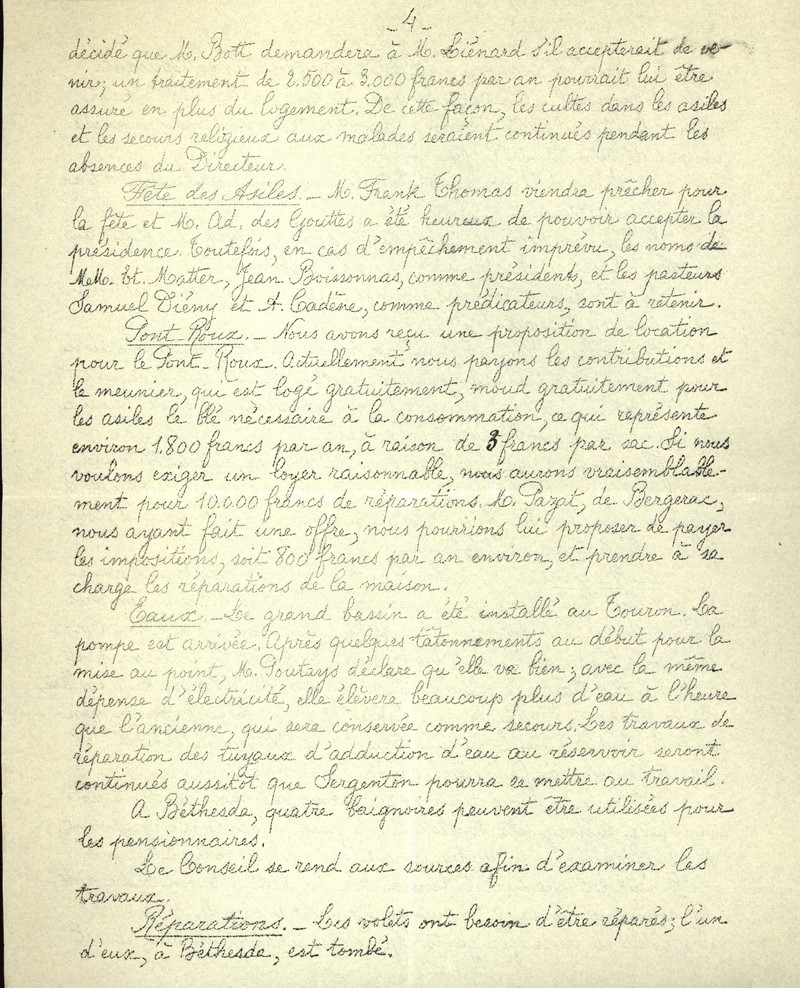 -4-
décidé que M. Bott demandera à M. Liénard s'il accepterait de ve-
nir; un traitement de 2.500 à 3.000 francs par an pourrait lui être
assuré en plus du logement. De cette façon, les cultes dans les asiles
et les secours religieux aux malades seraient continués pendant les
absences du Directeur.
Fête des Asiles. – M. Frank Thomas viendra prêcher pour
la fête et M. Ad. des Gouttes a été heureux de pouvoir accepter la
présidence. Toutefois, en cas d'empêchement imprévu, les noms de
MM. Et. Matter, Jean Boissonnas, comme présidents, et les pasteurs
Samuel Diény et A. Cadène, comme prédicateurs, sont à retenir.
Pont-Roux. – Nous avons reçu une proposition de location
pour le Pont-Roux. Actuellement nous payons les contributions et
le meunier, qui est logé gratuitement, moud gratuitement pour
les asiles le blé nécessaire à la consommation, ce qui représente
environ 1.800 francs par an, à raison de 3 francs par sac. Si nous
voulons exiger un loyer raisonnable, nous aurons vraisemblable-
ment pour 10.000 francs de réparations. M. Pazat, de Bergerac,
nous ayant fait une offre, nous pourrions lui proposer de payer
les impositions, soit 800 francs par an environ, et prendre à sa
charge les réparations de la maison.
Eaux. – Le grand bassin a été installé au Touron. La
pompe est arrivée. Après quelques tâtonnements au début pour la
mise au point, M. Poutays déclare qu'elle va bien; avec la même
dépense d'électricité, elle élèvera beaucoup plus d'eau à l'heure
que l'ancienne, qui sera conservée comme secours. Les travaux de
réparation des tuyaux d'adduction d'eau au réservoir seront
continués aussitôt que Sergenton pourra se mettre au travail.
A Béthesda, quatre baignoires peuvent être utilisées pour
les pensionnaires.
Le Conseil se rend aux sources afin d'examiner les
travaux.
Réparations. – Les volets ont besoin d'être réparés; l'un
d'eux, à Béthesda, est tombé.